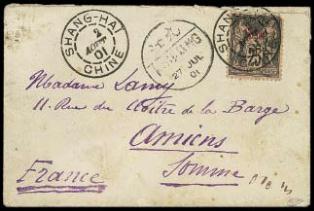 SHANG-HAI
2
AOUT
01
CHINE
27 JUL
01
SHANG-HAI
Madame Lamy
11 Rue du Cloître de la Barge
Amiens
Somme
France